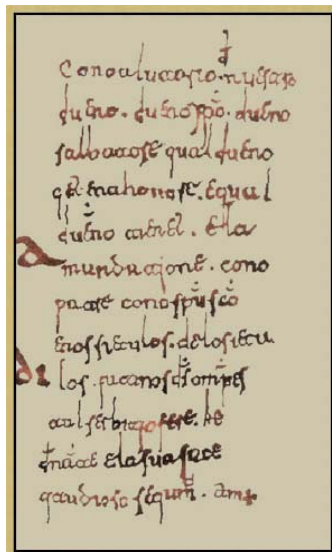 Cono aiutorio. nuestro
dueno. dueno xpo. dueno
salbatore qual dueno
get. ena honore. equal
dueno tienet. ela
mandatjone. cono
patre cono spu sco
enos sieculos. delosiecu
los. facanos ds omnpes
tal serbitjo fere. ke
denante ela sua face
gaudioso segamus. amen